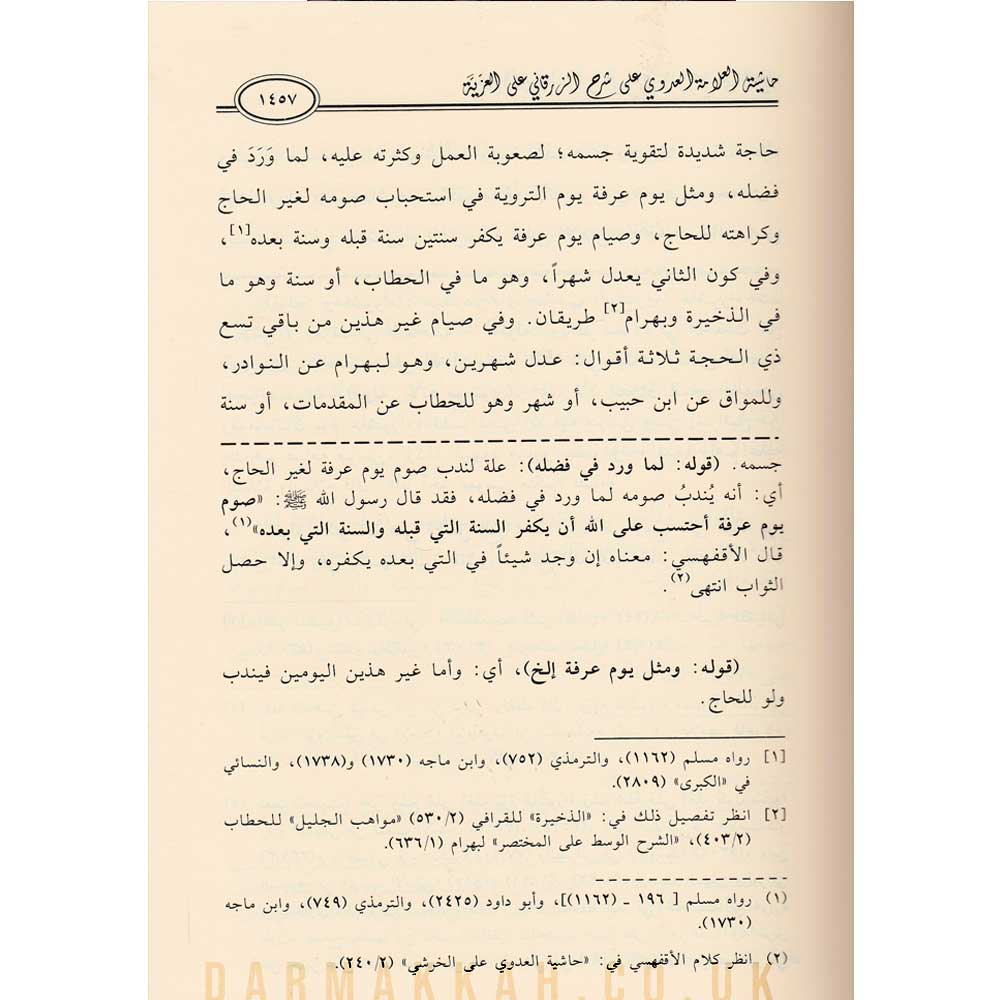 حاشية العلامة العدوي على شرح الزرقاني على العزية
١٤٥٧
حاجة شديدة لتقوية جسمه؛ لصعوبة العمل وكثرته عليه، لما وَرَدَ في
فضله، ومثل يوم عرفة يوم التروية في استحباب صومه لغير الحاج
وكراهته للحاج، وصيام يوم عرفة يكفر سنتين سنة قبله وسنة بعده[١]،
وفي كون الثاني يعدل شهراً، وهو ما في الحطاب، أو سنة وهو ما
في الذخيرة وبهرام[٢] طريقان. وفي صيام غير هذين من باقي تسع
ذي الحجة ثلاثة أقوال: عدل شهرين، وهو لبهرام عن النوادر،
وللمواق عن ابن حبيب، أو شهر وهو للحطاب عن المقدمات، أو سنة
جسمه. (قوله: لما ورد في فضله): علة لندب صوم يوم عرفة لغير الحاج،
أي: أنه يُندبُ صومه لما ورد في فضله، فقد قال رسول الله ﷺ: «صوم
يوم عرفة أحتسب على الله أن يكفر السنة التي قبله والسنة التي بعده»(١)،
قال الأقفهسي: معناه إن وجد شيئاً في التي بعده يكفره، وإلا حصل
الثواب انتهى(٢).
(قوله: ومثل يوم عرفة إلخ)، أي: وأما غير هذين اليومين فيندب
ولو للحاج.
[١] رواه مسلم (١١٦٢)، والترمذي (٧٥٢)، وابن ماجه (١٧٣٠) و(١٧٣٨)، والنسائي
في «الكبرى» (٢٨٠٩).
[٢] انظر تفصيل ذلك في: «الذخيرة» للقرافي (٥٣٠/٢) «مواهب الجليل» للحطاب
(٤٠٣/٢)، «الشرح الوسط على المختصر» لبهرام (٦٣٦/١).
(١) رواه مسلم [ ١٩٦ ـ (١١٦٢)]، وأبو داود (٢٤٢٥)، والترمذي (٧٤٩)، وابن ماجه
(١٧٣٠).
(٢) انظر كلام الأقفهسي في: «حاشية العدوي على الخرشي» (٢٤٠/٢).
DARMAKKAH.CO.UK